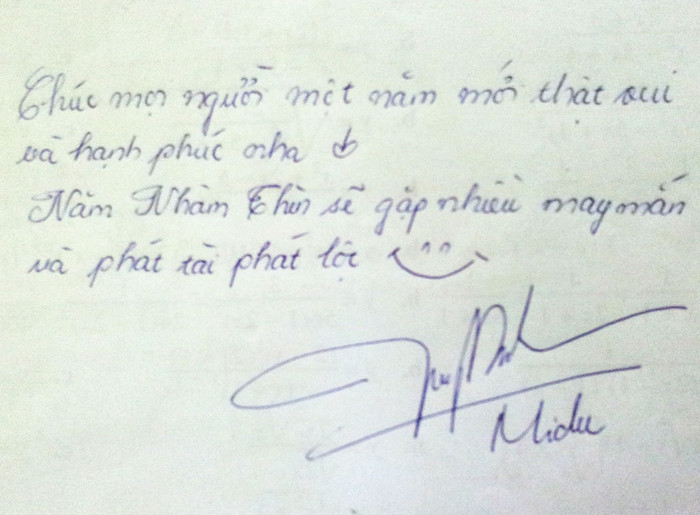 Chúc mọi người một năm mới thật vui
và hạnh phúc nha
Năm Nhâm Thìn sẽ gặp nhiều may mắn
và phát tài phát lộc
Midu